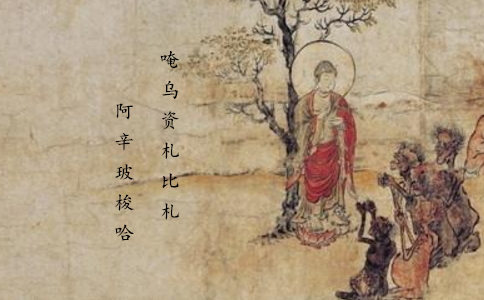 唵乌资札比札
阿辛玻梭哈